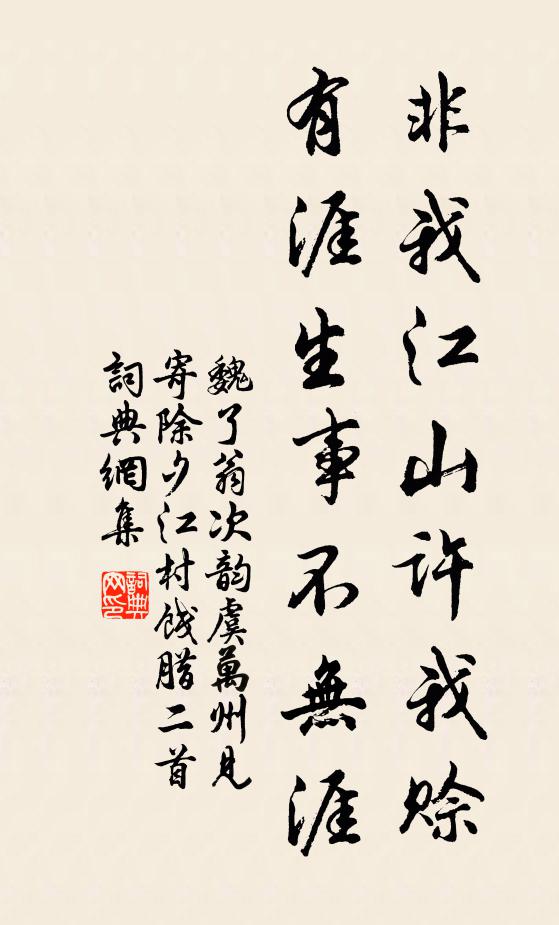 非我江山許我賒
有涯生事不無涯
魏了翁次韵虞萬州見
寄除夕江村餞腊二首
詞典網集
詞典网印